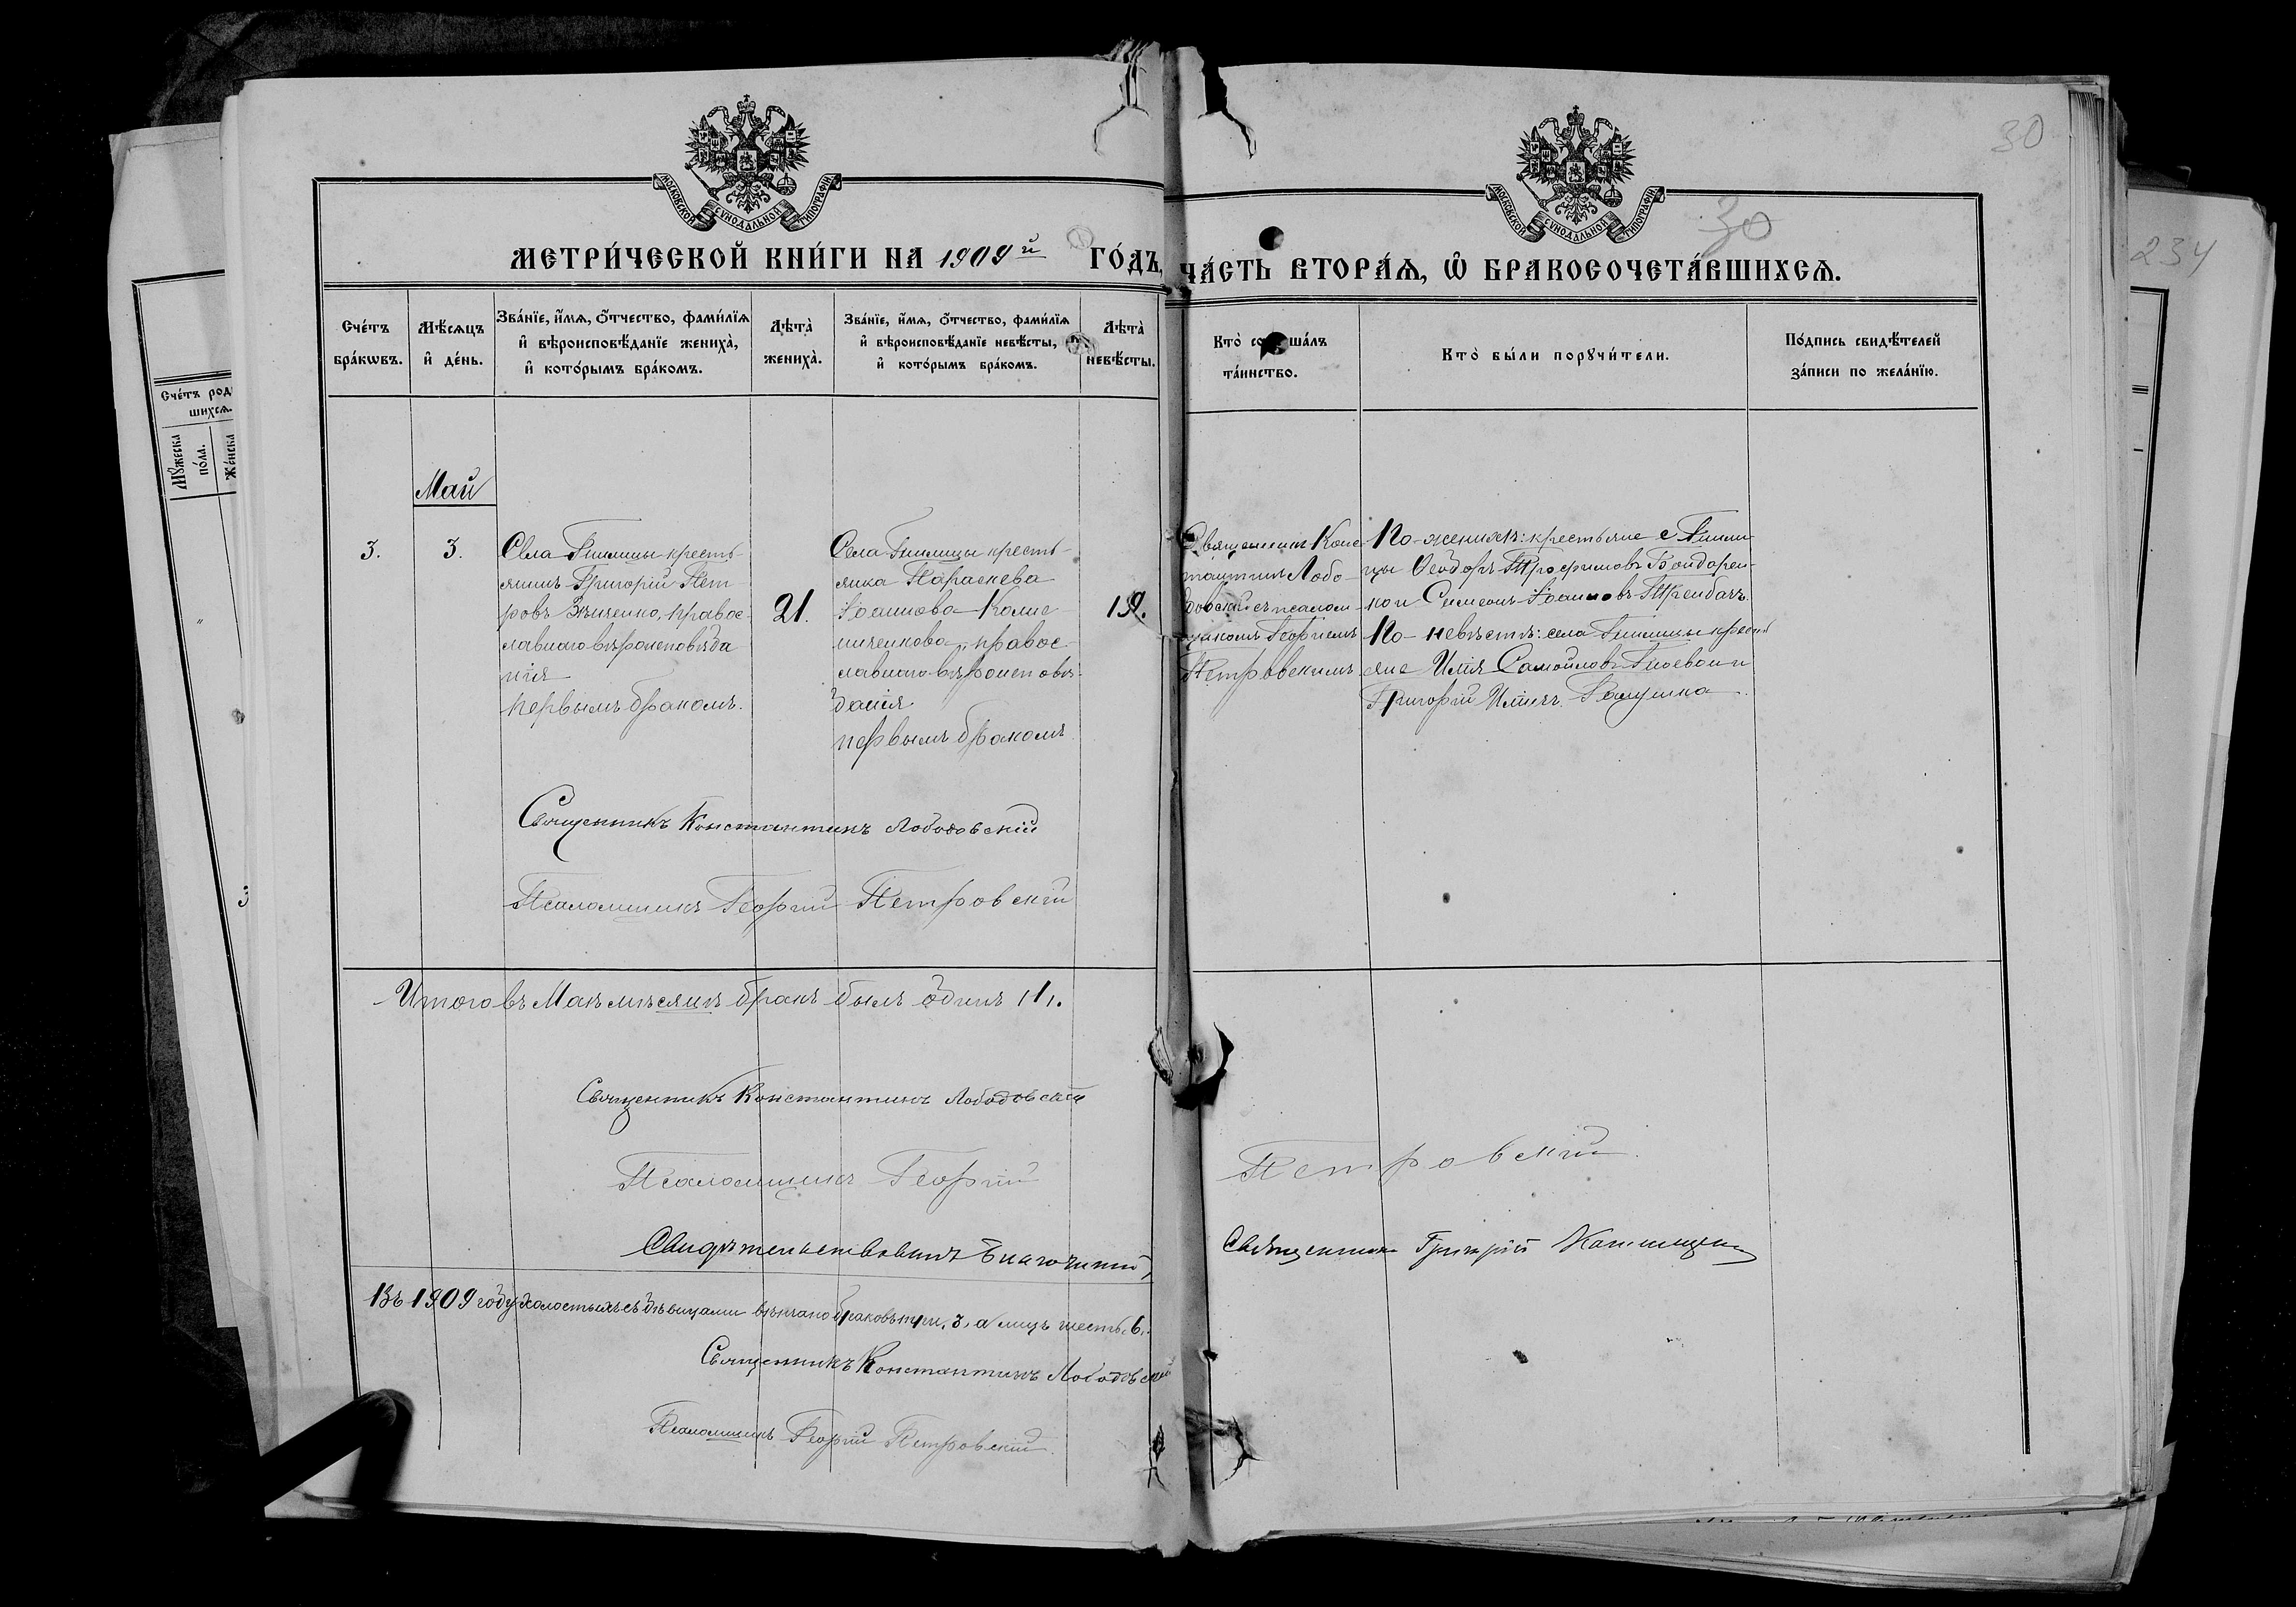 30
МОСКОВСКОЙ СѴНОДАЛЬНОЙ ТИПОГРАФІИ
МОСКОВСКОЙ СѴНОДАЛЬНОЙ ТИПОГРАФІИ
30
234
МЕТРИ́ЧЕСКОЙ КНИ́ГИ НА 1909й ГО́ДЪ,
ЧА́СТЬ ВТОРА́Ѧ, Ѽ БРАКОСОЧЕТА́ВШИХСѦ.
Сче́тъ бра́кѡвъ.
Мѣ́сѧцъ и҆ де́нь.
Зва́нїе, и҆́мѧ, ѻ҆́тчество, фами́лїѧ
и҆ вѣроисповѣ́данїе жениха̀,
и҆ кото́рымъ бра́комъ.
Лѣ́та̀ жениха̀.
Зва́нїе, и҆́мѧ, ѻ҆́тчество, фами́лїѧ
и҆ вѣроисповѣ́данїе невѣ́сты,
и҆ кото́рымъ бра́комъ.
Лѣ́та̀ невѣ́сты.
Кто̀ со шáлъ
та́инство.
Кто̀ бы́ли порꙋчи́тели.
По́дпись свидѣ́телей
за́писи по жела́нїю.
Сче́тъ род
шихсѧ.
Мꙋ́жеска
по́ла.
Же́нска
Май
3.
3.
Села Гнилицы кресть-
янинъ Григорій Пет-
ровъ Зѣнченко, правос-
лавнаго вѣроисповѣда
нія
первымъ бракомъ.
21.
Села Гнилицы кресть-
янка Параскева
Іоаннова
правос-
лавнаго вѣроисповѣ-
данія
первымъ бракомъ
19.
Священникъ Конс
тантинъ Лобо-
довскій съ псалом-
щикомъ Георгіемъ
Петровскимъ
По-женихѣ: крестьяне с Гнили-
цы Ѳеодоръ Трофимовъ Бондарен-
ко и Симеонъ Іоанновъ
По-невѣстѣ: села Гнилицы кресть
яне Илія Самойловъ и
Григорій Иліинъ
Священникъ Константинъ Лободовскій
Псаломщикъ Георгій Петровскій
Итого въ Маѣ мѣсяцѣ бракъ былъ одинъ /1/.
Священникъ Константинъ Лободовскій
Псаломщикъ Георгій Петровскій.
Свидѣтельствовалъ Благочинный, Священникъ Григорій
Въ 1909 году холостыхъ съ дѣвицами вѣнчано браковъ три, 3, а лицъ шесть, 6.
Священникъ Константинъ Лободовскій
Псаломщикъ Георгій Петровскій.